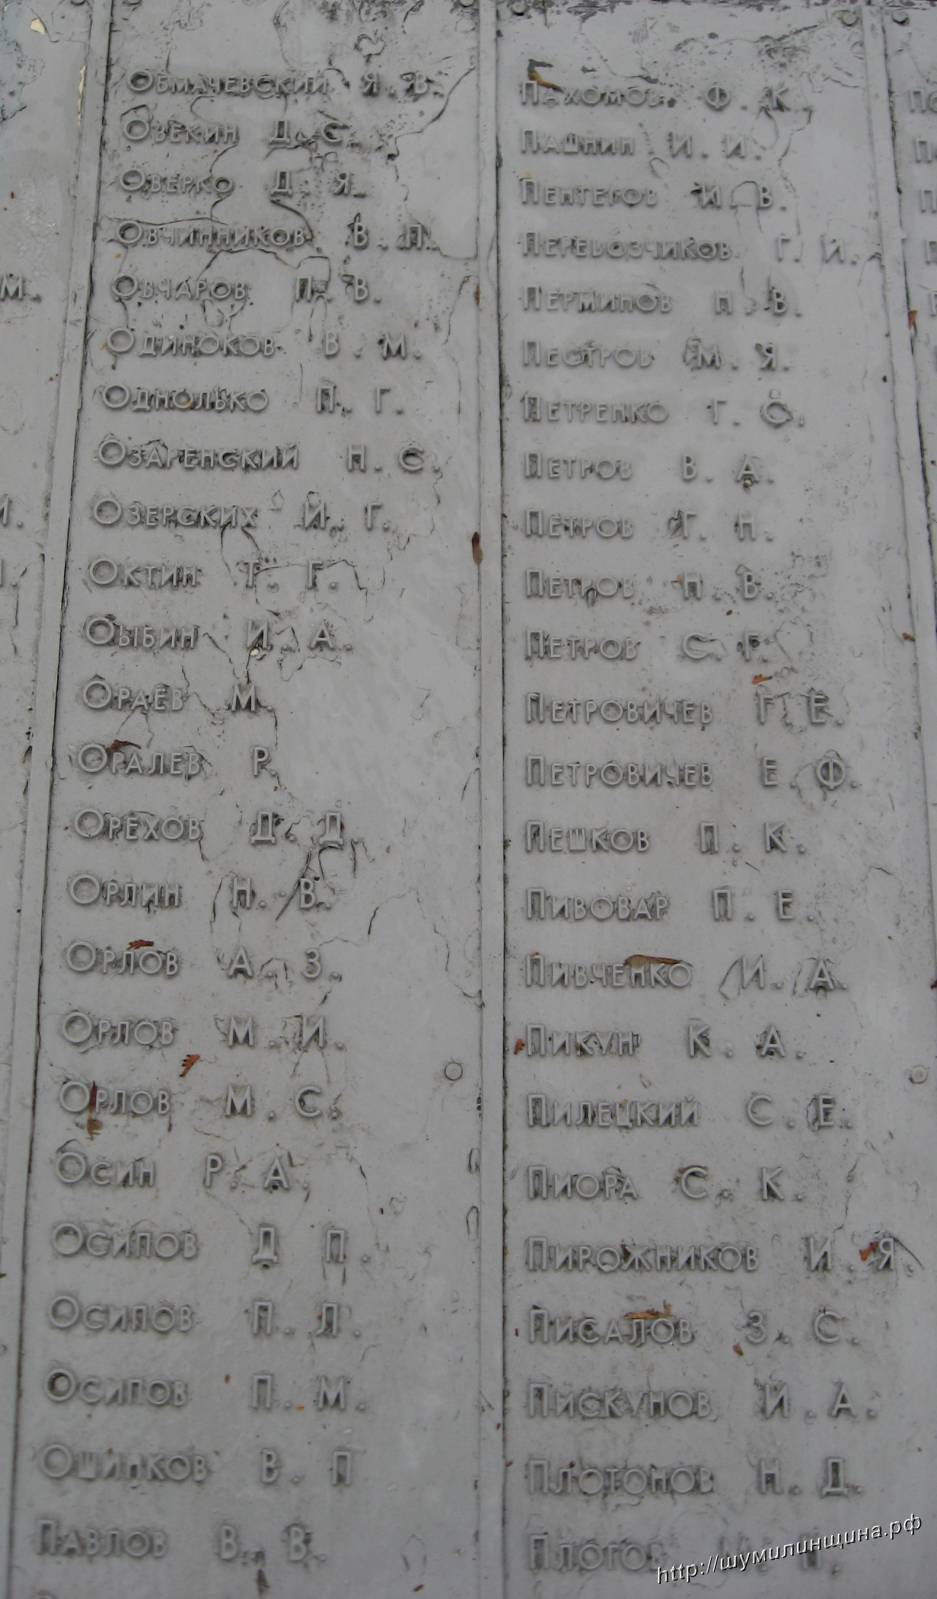 Обмачевский Я.В.
Овекин Д.С.
Оверко Д.Я.
Овчинников В.П.
Овчаров П.В.
Одиноков В.М.
Однолько П.Г.
Озаренский Н.С.
Озерских И.Г.
Октин Т.Г.
Оыбин И.А.
Ораев М.
Оралев Р.
Орехов Д.Д.
Орлин Н.В.
Орлов А.З.
Орлов М.И.
Орлов М.С.
Осин Р.А.
Осипов Д П.
Осипов П.Л.
Осипов П.М.
Ошипков В.П
Павлов В.В.
Пахомов Ф.К.
Пашнин И.И.
Пентеров И.В.
Перевозчиков Г.И.
Перминов Н.В.
Пестров М.Я.
Петренко Г.С.
Петров В.А.
Петров Г.Н.
Петров Н.В.
Петров С.Г.
Петровичев Г.Е.
Петровичев Е.Ф.
Пешков П.К.
Пивовар П.Е.
Пивченко И.А.
Пикун К.А.
Пилецкий С.Е.
Пиора С.К.
Пирожников И.Я.
Писалов З.С.
Пискунов И.А.
Плотонов Н.Д.
Плотов
http://шумилинщина.рф